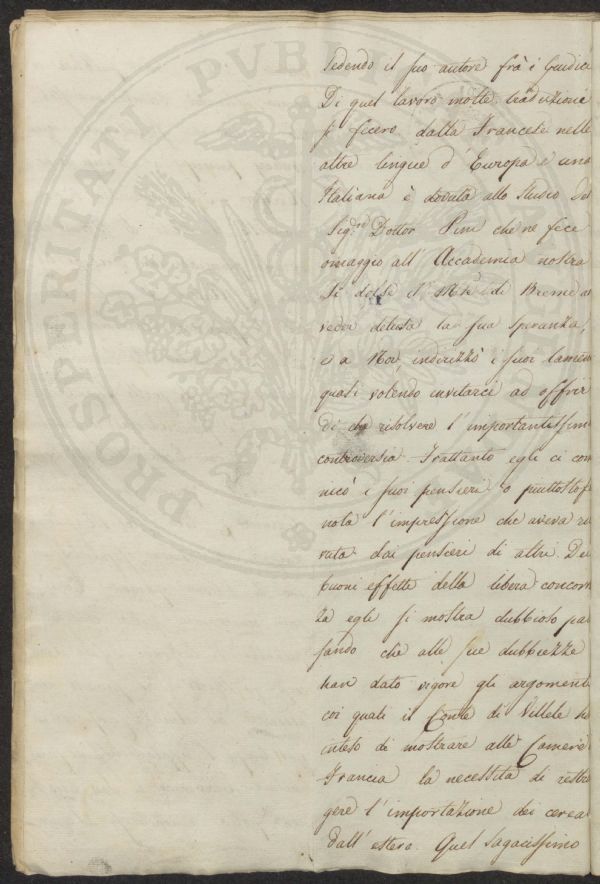 PROSPERITATI PUBLI
sedendo il suo autore frà i Giudici
Di quel lavoro molte traduzioni
si fecero dalla Francese nelle
altre lingue d'Europa e una
Italiana è dovuta allo studio del
Sig.re Dottor Pini che ne fece
omaggio all'Accademia nostra
Si dolse il Mse di Breme
veder delusa la sua speranza,
e a Noi indirizzò i suoi lamen
quasi volendo invitarci ad offrir
di risolvere l'importantissim
controversia. Frattanto egli ci com
nicò i suoi pensieri o piuttosto
notà l'impressione che aveva ri
vuta dai pensieri di altri. Dei
buoni effetti della libera concorr
za egli si mostra dubbioso pa
sando che alle sue dubbiezze
han dato vigore gli argoment
coi quali il Conte di Villele ha
inteso di mostrare alle Camere
Francia la necessità di restri
gere l'importazione dei cerea
dall'estero. Quel sagacissimo